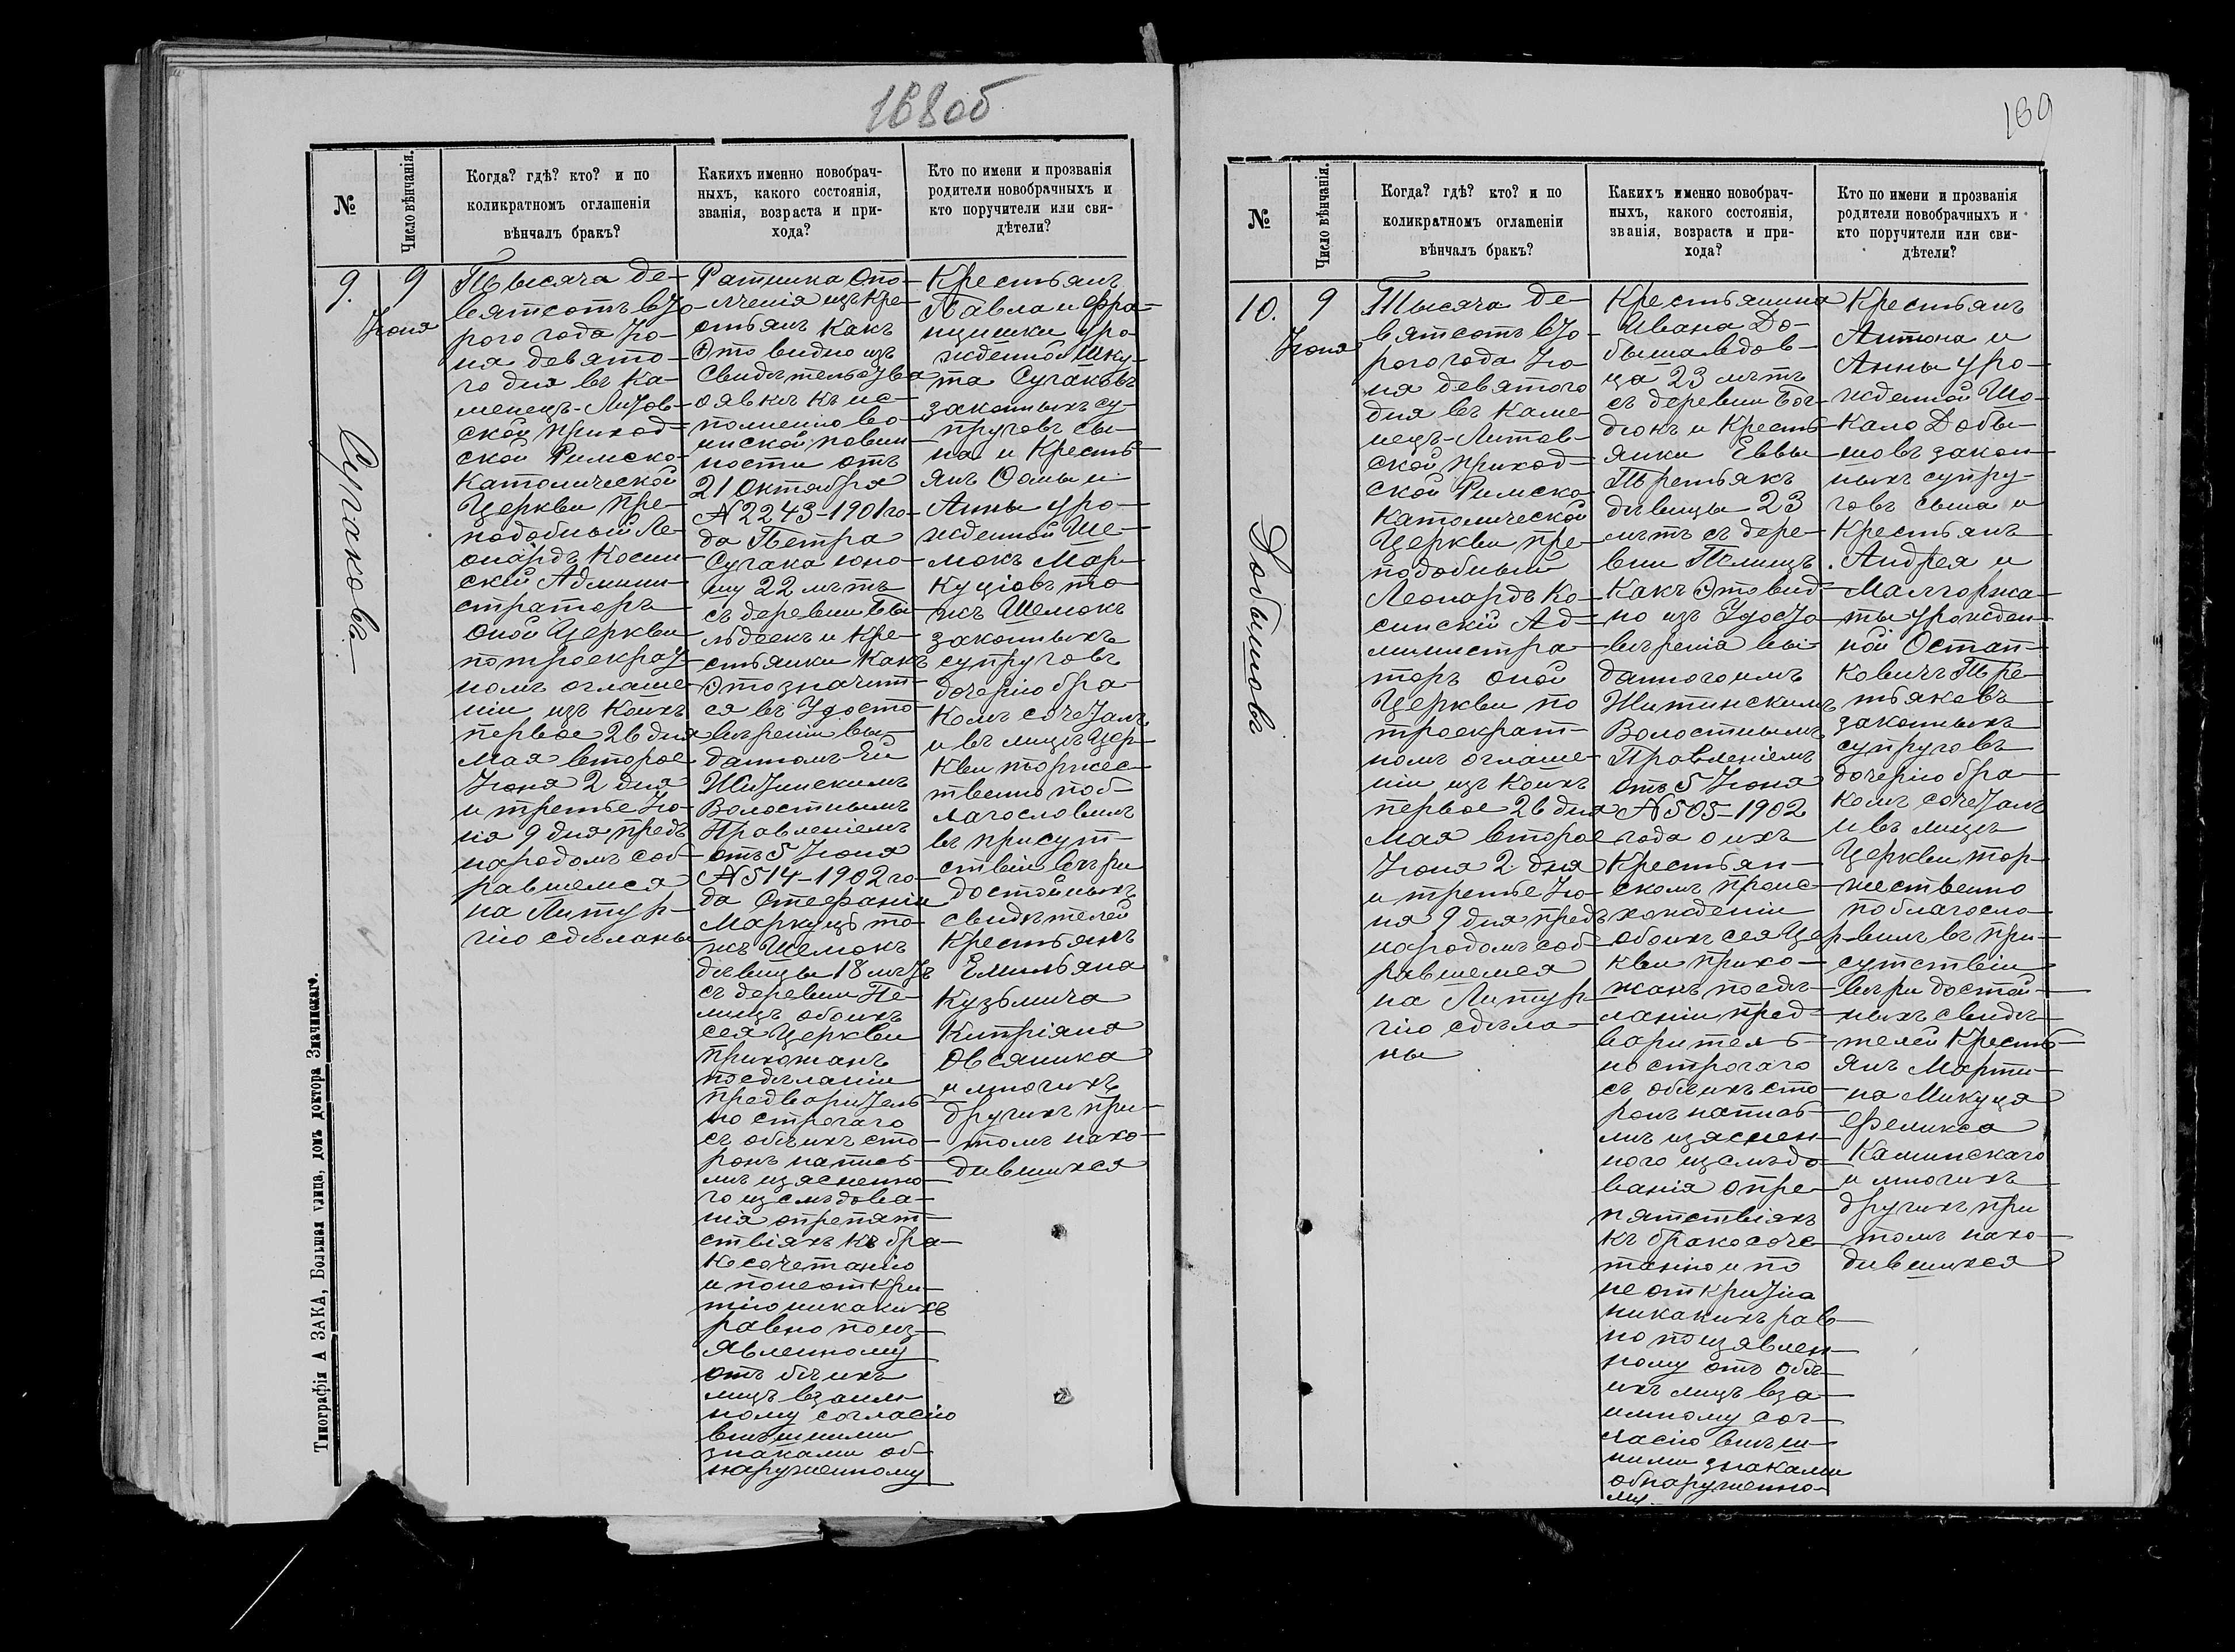 168об
№
Число вѣнчанія.
Когда? гдѣ? кто? и по
коликратномъ оглашеніи
вѣнчалъ бракъ?
Какихъ именно новобрач-
ныхъ, какого состоянія,
званія, возраста и при-
хода?
Кто по имени и прозванія
родители новобрачныхъ и
кто поручители или сви-
дѣтели?
9.
9
Іюня
Сугаковъ
Тысяча де-
вятсотъ вто-
рого года Ію-
ня девято-
го дня въ Ка-
менецъ-Литов-
ской приход-
ской Римско-
Католической
Церкви пре-
подобный Ле-
онардъ Косин-
скій Админи-
страторъ
оной Церкви
по троекрат-
номъ оглаше-
ніи изъ коихъ
первое 26 дня
Мая второе
Іюня 2 дня
и третье Ію-
ня 9 дня предъ
народомъ соб-
равшемся
на Литур-
гію сдѣланы
Ратника Опо-
лченія изъ кре-
стьянъ какъ
это видно изъ
свидѣтельства
о явкѣ къ ис-
полненію во-
инской повин-
ности отъ
21 Октября
№ 2243-1901 го-
да Петра
Сугака юно-
шу 22 лѣтъ
съ деревни Вы-
и Кре-
стьянки какъ
это значит-
ся въ Удосто-
вѣреніи вы-
данномъ ей
Житинскимъ
Волостнымъ
Правленіемъ
отъ 5 Іюня
№ 514-1902 го-
да Стефаніи
Маркуцъ то-
жъ Шемокъ
дѣвицы 18 лѣтъ
съ деревни Пе-
лищъ обоихъ
сея Церкви
прихожанъ
по сдѣланіи
предворитель
но строгаго
съ обѣихъ сто-
ронъ на пись-
мѣ изясненно-
го изслѣдова-
нія о препят-
ствіяхъ къ бра-
косочетанію
и по неоткри-
тію никакихъ
равно по из-
явленному
отъ обѣихъ
лицъ взаим-
ному согласію
внѣшними
знаками об-
наруженному
Крестьянъ
Павла и Фра-
нцишки уро-
жденной Шку-
та Сугаковъ
законныхъ су-
пруговъ сы-
на и Кресть-
янъ Фомы и
Анны уро-
жденной Ше-
мокъ Мар-
куцовъ то-
жъ Шемокъ
законныхъ
супруговъ
дочерію бра-
комъ сочеталъ
и въ лицѣ Цер-
кви торжес-
твенно поб-
лагословилъ
въ присут-
ствіи вѣри
достойныхъ
свидѣтелей
Крестьянъ
Емильяна
Кузьмича
Кипріяна
Овсяника
и многихъ
другихъ при-
томъ нахо-
дившихся
Типографія А ЗАКА, Большая улица, домъ доктора Значинскаго.
169
№
Число вѣнчанія.
Когда? гдѣ? кто? и по
коликратномъ оглашеніи
вѣнчалъ бракъ?
Какихъ именно новобрач-
ныхъ, какого состоянія,
званія, возраста и при-
хода?
Кто по имени и прозванія
родители новобрачныхъ и
кто поручители или сви-
дѣтели?
10.
9
Іюня
Добышовъ
Тысяча де-
вятсотъ вто-
рого года Ію-
ня девятого
дня въ Каме-
нецъ-Литов-
ской приход-
ской Римско
Католической
Церкви пре-
подобный
Леонардъ Ко-
синскій Ад-
министра-
торъ оной
Церкви по
троекрат-
номъ оглаше-
ніи изъ коихъ
первое 26 дня
Мая второе
Іюня 2 дня
и третье Ію-
ня 9 дня предъ
народомъ соб-
равшемся
на Литур-
гію сдѣла-
ны
Крестьянина
Ивана До-
быша вдов-
ца 23 лѣтъ
съ деревни Бог-
дюкъ и Кресть-
янки Еввы
Третьякъ
дѣвицы 23
лѣтъ съ дере-
вни Пелищъ
какъ это вид-
но изъ Удосто-
вѣренія вы-
данного имъ
Житинскимъ
Волостнымъ
Правленіемъ
отъ 5 Іюня
№ 505-1902
года о ихъ
Крестьян-
скомъ проис-
хожденіи
обоихъ сея Цер-
кви прихо-
жанъ по сдѣ-
ланіи пред-
варитель-
но строгаго
съ обѣихъ сто-
ронъ на пись-
мѣ изяснен-
ного изслѣдо-
ванія о пре-
пятствіяхъ
къ бракосоче-
танію и по
не открытіа
никакихъ рав-
но по изявлен-
ному отъ обѣ-
ихъ лицъ вза-
имному сог-
ласію внѣш-
ними знаками
обнаруженно-
му.
Крестьянъ
Антона и
Анны уро-
жденной Шо-
кало Добы-
шовъ закон-
ныхъ супру-
говъ сына и
Крестьянъ
Андрея и
Малгоржа-
ты урожден-
ной Остап-
ковичъ Тре-
тьяковъ
законныхъ
супруговъ
дочерію бра-
комъ сочеталъ
и въ лицѣ
Церкви тор-
жественно
поблагосло-
вилъ въ при-
сутствіи
вѣри достой-
ныхъ свидѣ-
телей Кресть-
янъ Марти-
на Микуця
Феликса
Каминскаго
и многихъ
другихъ при
томъ нахо-
дившихся